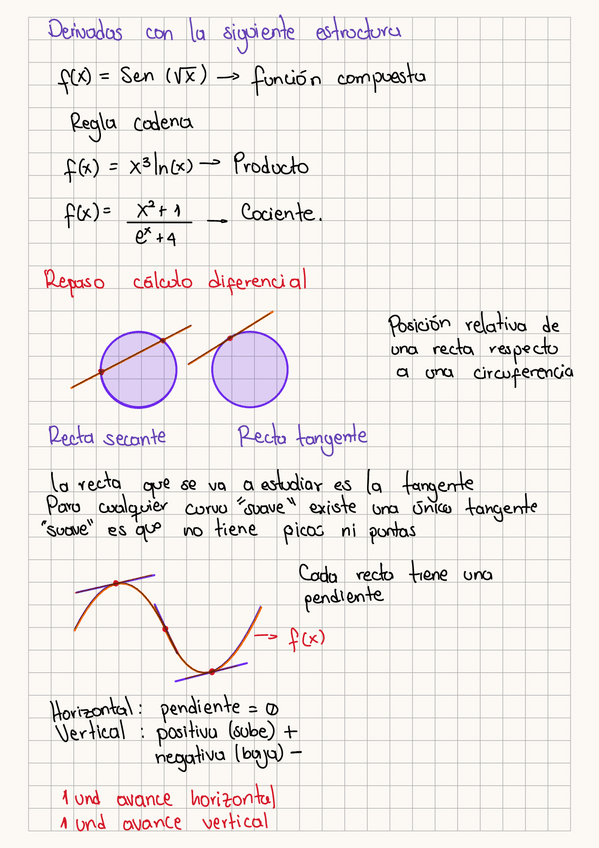 Derivadas con la siguiente estructura
f(x) = Sen (√x) → función compuesta
Regla cadena
f(x) = x³ln(x) → Producto
f(x) = x² + 1 / eˣ + 4 — Cociente.
Repaso cálculo diferencial
Posición relativa de
una recta respecto
a una circuferencia
Recta secante
Recta tangente
la recta que se va a estudiar es la tangente
Para cualquier curva "suave" existe una única tangente
"suave" es que no tiene picos ni puntas
Cada recta tiene una
pendiente
→ f(x)
Horizontal: pendiente = 0
Vertical : positiva (sube) +
negativa (baja) –
1 und avance horizontal
1 und avance vertical